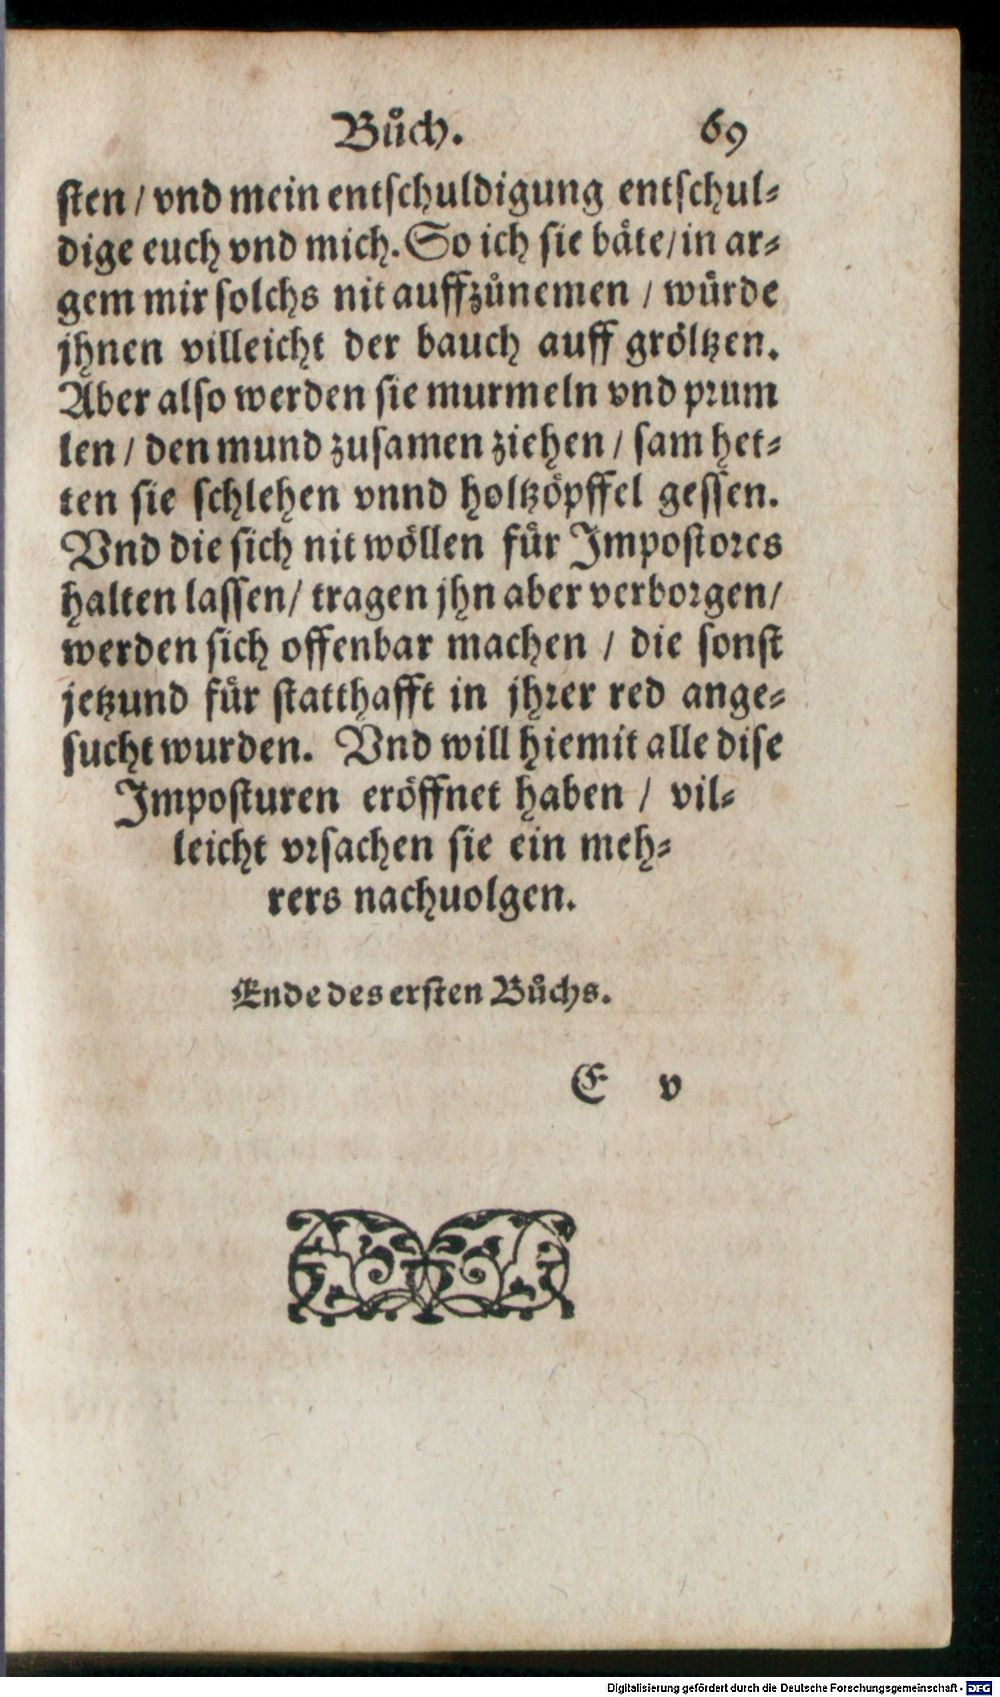 Bůch. 69
ſten / vnd mein entſchuldigung entſchul⸗
dige euch vnd mich. So ich ſie bäte / in ar⸗
gem mir ſolchs nit auffzůnemen / würde
jhnen villeicht der bauch auff gröltzen.
Aber alſo werden ſie murmeln vnd prum
len / den mund zuſamen ziehen / ſam het⸗
ten ſie ſchlehen vnnd holtzöpffel geſſen.
Vnd die ſich nit wöllen für Impoſtores
halten laſſen / tragen jhn aber verborgen /
werden ſich offenbar machen / die ſonſt
jetzund für ſtatthafft in jhrer red ange⸗
ſucht wurden. Vnd will hiemit alle diſe
Impoſturen eröffnet haben / vil⸗
leicht vrſachen ſie ein meh⸗
rers nachuolgen.
Ende des erſten Bůchs.
E v
Digitalisierung gefördert durch die Deutsche Forschungsgemeinschaft - DFG